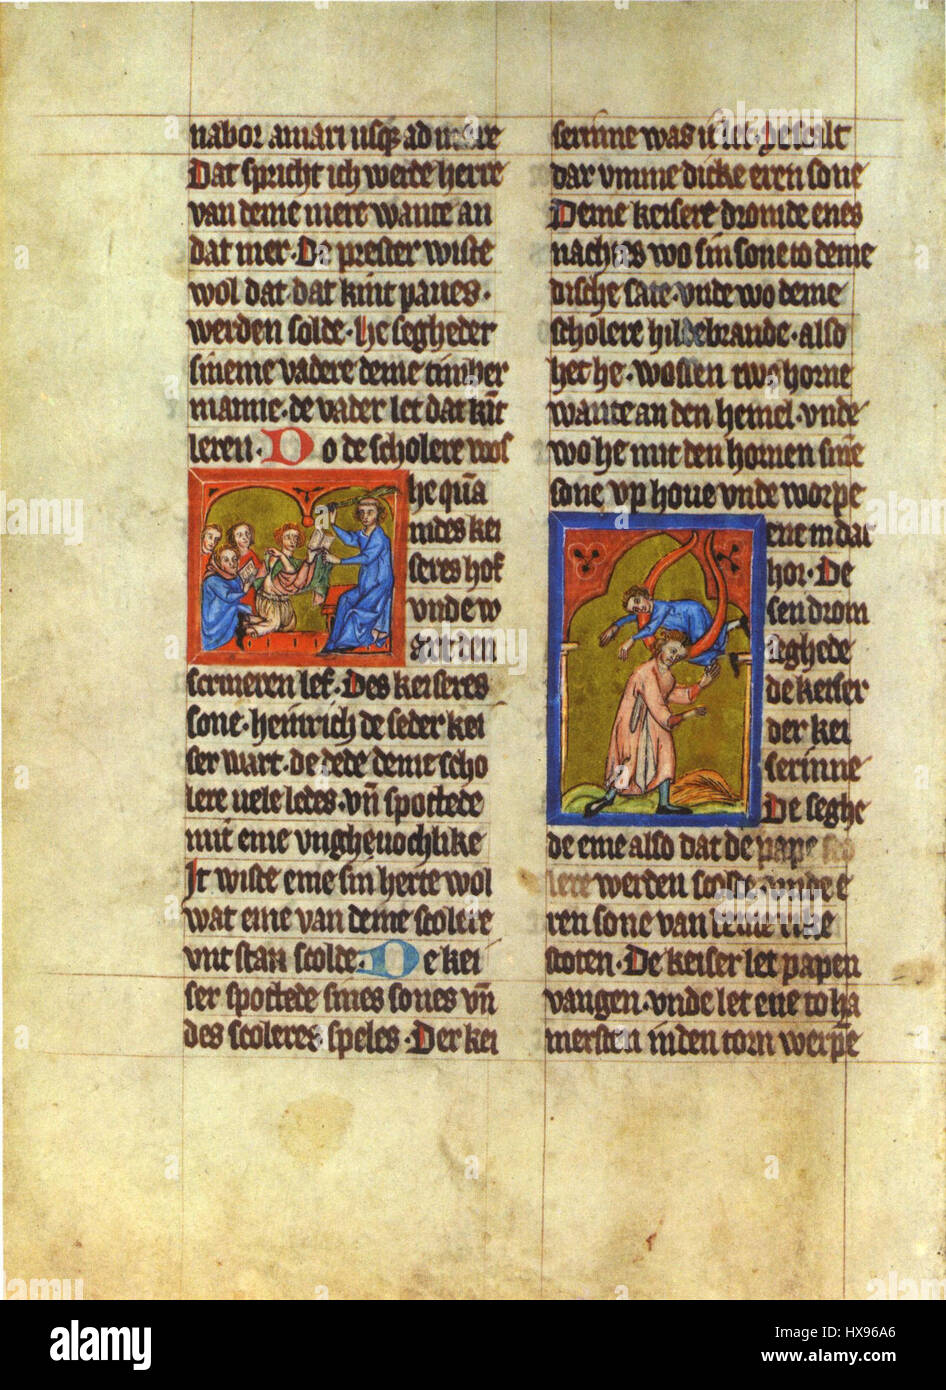 nabor amari usq̄ ad mare
Dat spricht ich werde herre
van deme mere wante an
dat mer. De prester wiste
wol dat dat kint paues.
werden solde. he seghede r
sineme vadere deme timber
manne. de vader let dat kīt
leren. Do de scholere wos
he quā
in des kei
seres hof
vnde w
art en
scrineren lef. Des keiseres
sone. heinrich de seder kei
ser wart. de dede deme scho
lere uele ledes. vn̄ spottede
mit eme vngheuochlike
It wiste eme sin herte wol
wat eme van deme scolere
vntstan scolde. De kei
ser spottede sines sones vn̄
des scoleres speles. Der kei
serinne was it let.
dar vmme dicke eren sone
Deme keisere dromde enes
nachtes wo sin sone to deme
dische sate. vnde wo deme
scholere hildebrande. also
het he. wossen twe horne
wante an den hemel. vnde
wo he mit den hornen sine
sone vp houe vnde worpe
ene in dat
hor. De
sen drom
seghede
de keiser
der kei
serinne
De seghe
de eme also dat de pape sco
lere werden scolde. vnde e
ren sone van deme rike
stoten. De keiser let papen
vangen. vnde let ene to ha
mersten in den torn werpē
alamy
Image ID: HX96A6
www.alamy.com